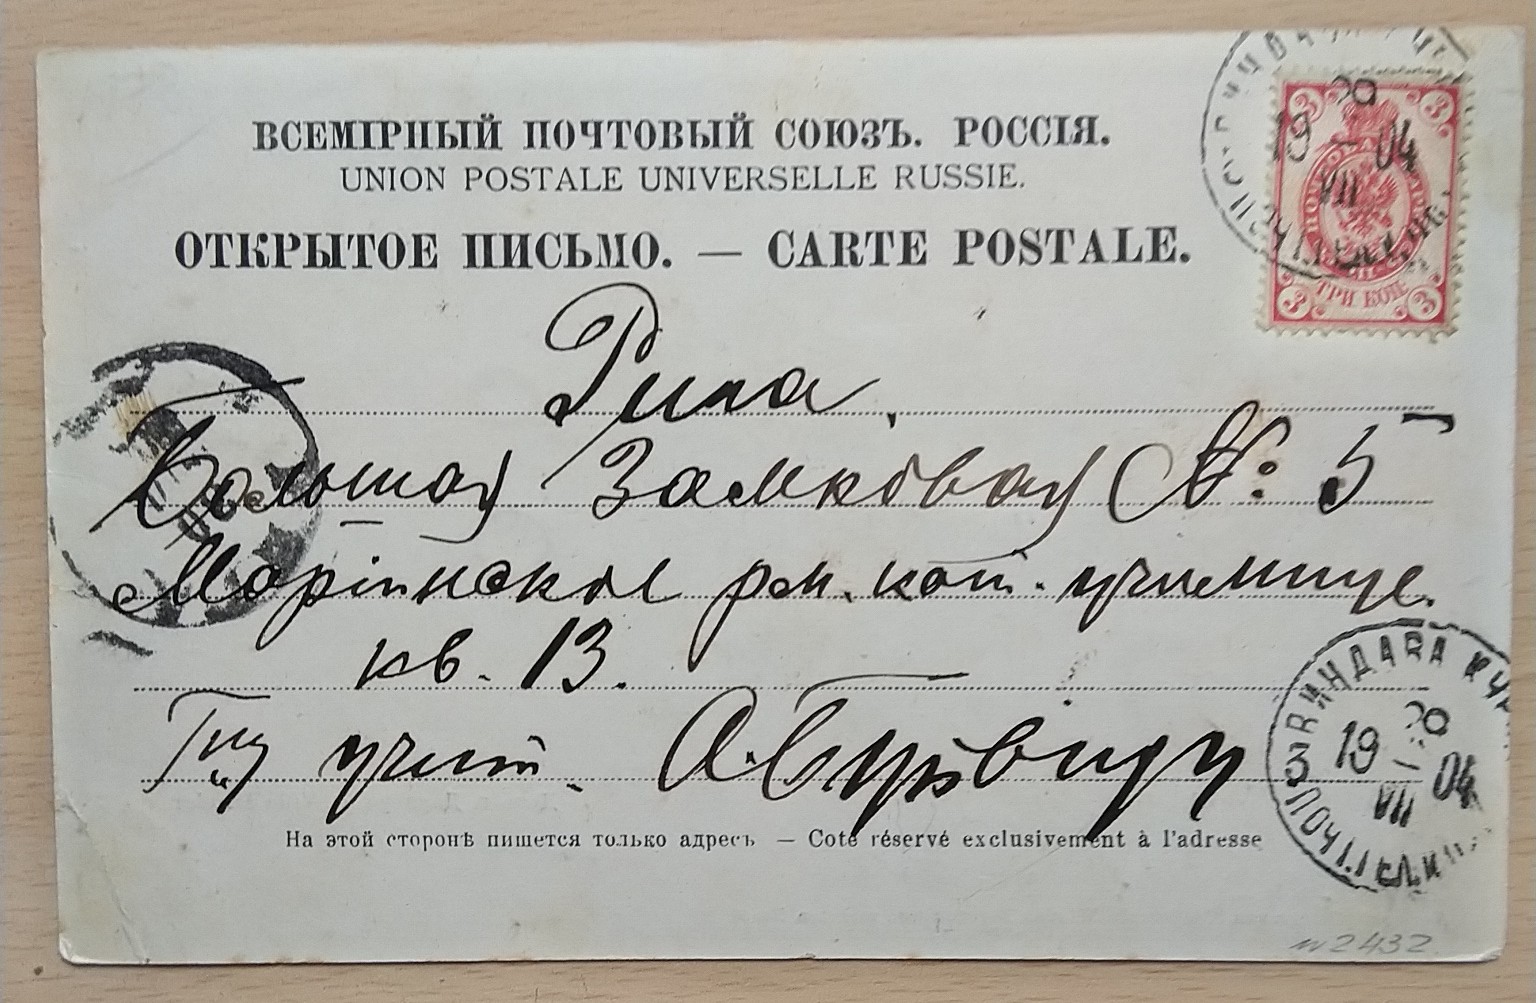 ВСЕМІРНЫЙ ПОЧТОВЫЙ СОЮЗЪ. РОССІЯ.
UNION POSTALE UNIVERSELLE RUSSIE.
ОТКРЫТОЕ ПИСЬМО. — CARTE POSTALE.
19 VII 04
ТРИ КОП.
3 3 3 3
Рига.
Большая Замковая № 5
Маріинское рем. кат. училище.
кв. 13.
учит.
На этой сторонѣ пишется только адресъ. — Coté réservé exclusivement à l'adresse
ВИНДАВА КУР
19 VII 04
2432